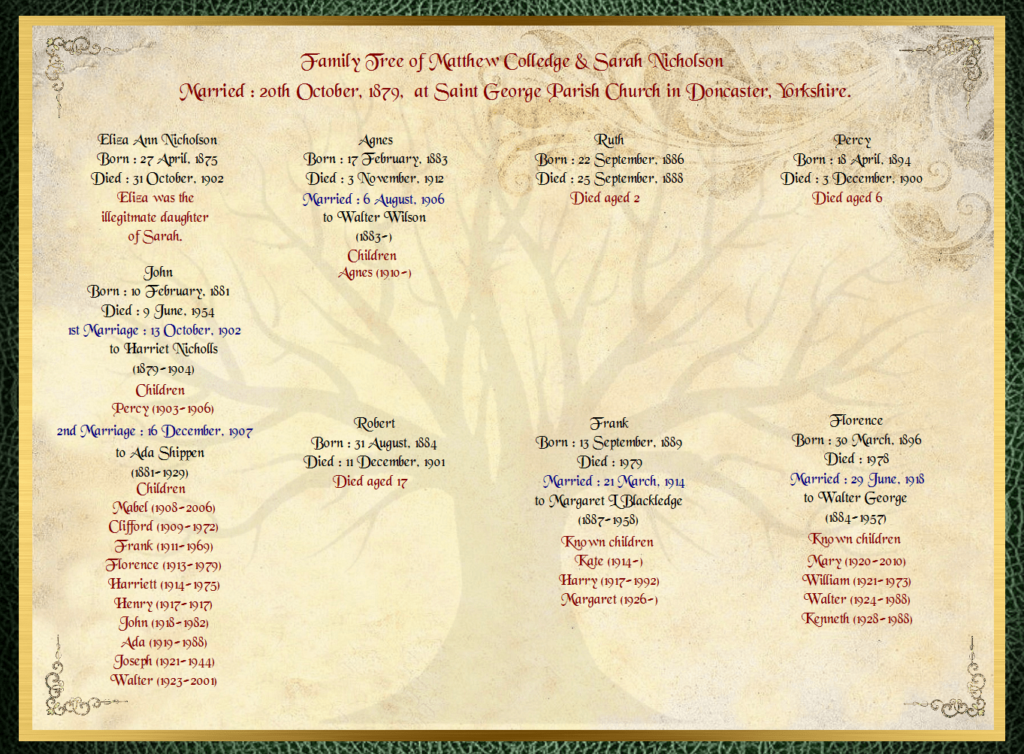 Family Tree of Matthew Colledge & Sarah Nicholson
Married : 20th October, 1879, at Saint George Parish Church in Doncaster, Yorkshire.
Eliza Ann Nicholson
Born : 27 April, 1875
Died : 31 October, 1902
Eliza was the
illegitmate daughter
of Sarah.
John
Born : 10 February, 1881
Died : 9 June, 1954
1st Marriage : 13 October, 1902
to Harriet Nicholls
(1879-1904)
Children
Percy (1903-1906)
2nd Marriage : 16 December, 1907
to Ada Shippen
(1881-1929)
Children
Mabel (1908-2006)
Clifford (1909-1972)
Frank (1911-1969)
Florence (1913-1979)
Harriett (1914-1975)
Henry (1917-1917)
John (1918-1982)
Ada (1919-1988)
Joseph (1921-1944)
Walter (1923-2001)
Agnes
Born : 17 February, 1883
Died : 3 November, 1912
Married : 6 August, 1906
to Walter Wilson
(1883-)
Children
Agnes (1910-)
Robert
Born : 31 August, 1884
Died : 11 December, 1901
Died aged 17
Ruth
Born : 22 September, 1886
Died : 25 September, 1888
Died aged 2
Frank
Born : 13 September, 1889
Died : 1979
Married : 21 March, 1914
to Margaret L Blackledge
(1887-1958)
Known children
Kate (1914-)
Harry (1917-1992)
Margaret (1926-)
Percy
Born : 18 April, 1894
Died : 3 December, 1900
Died aged 6
Florence
Born : 30 March, 1896
Died : 1978
Married : 29 June, 1918
to Walter George
(1884-1957)
Known children
Mary (1920-2010)
William (1921-1973)
Walter (1924-1988)
Kenneth (1928-1988)